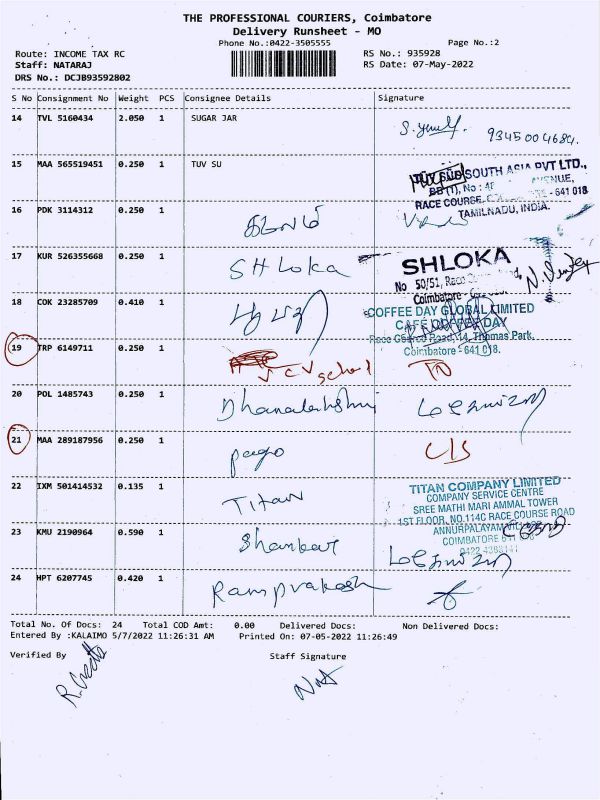 THE PROFESSIONAL COURIERS, Coimbatore
Delivery Runsheet - MO
Phone No.:0422-3505555 Page No.:2
Route: INCOME TAX RC RS No.: 935928
Staff: NATARAJ RS Date: 07-May-2022
DRS No.: DCJB93592802
S No Consignment No Weight PCS Consignee Details Signature
14 TVL 5160434 2.050 1 SUGAR JAR
15 MAA 565519451 0.250 1 TUV SU
TUV SUD SOUTH ASIA PVT LTD.,
RACE COURSE, - 641 018
TAMILNADU, INDIA.
16 PDK 3114312 0.250 1
17 KUR 526355668 0.250 1 SHLoka SHLOKA
No 50/51, Race
Coimbatore -
18 COK 23285709 0.410 1
COFFEE DAY GLOBAL LIMITED
CAFE COFFEE DAY
Race Course Road, 14, Thomas Park,
Coimbatore - 641 018.
19 TRP 6149711 0.250 1 V C V school
20 POL 1485743 0.250 1 Dhanalakshmi
21 MAA 289187956 0.250 1
22 IXM 501414532 0.135 1 Titan
TITAN COMPANY LIMITED
COMPANY SERVICE CENTRE
SREE MATHI MARI AMMAL TOWER
1ST FLOOR, NO.114C RACE COURSE ROAD
23 KMU 2190964 0.590 1 Shankar
24 HPT 6207745 0.420 1 Ramprakash
Total No. Of Docs: 24 Total COD Amt: 0.00 Delivered Docs: Non Delivered Docs:
Entered By :KALAIMO 5/7/2022 11:26:31 AM Printed On: 07-05-2022 11:26:49
Verified By Staff Signature